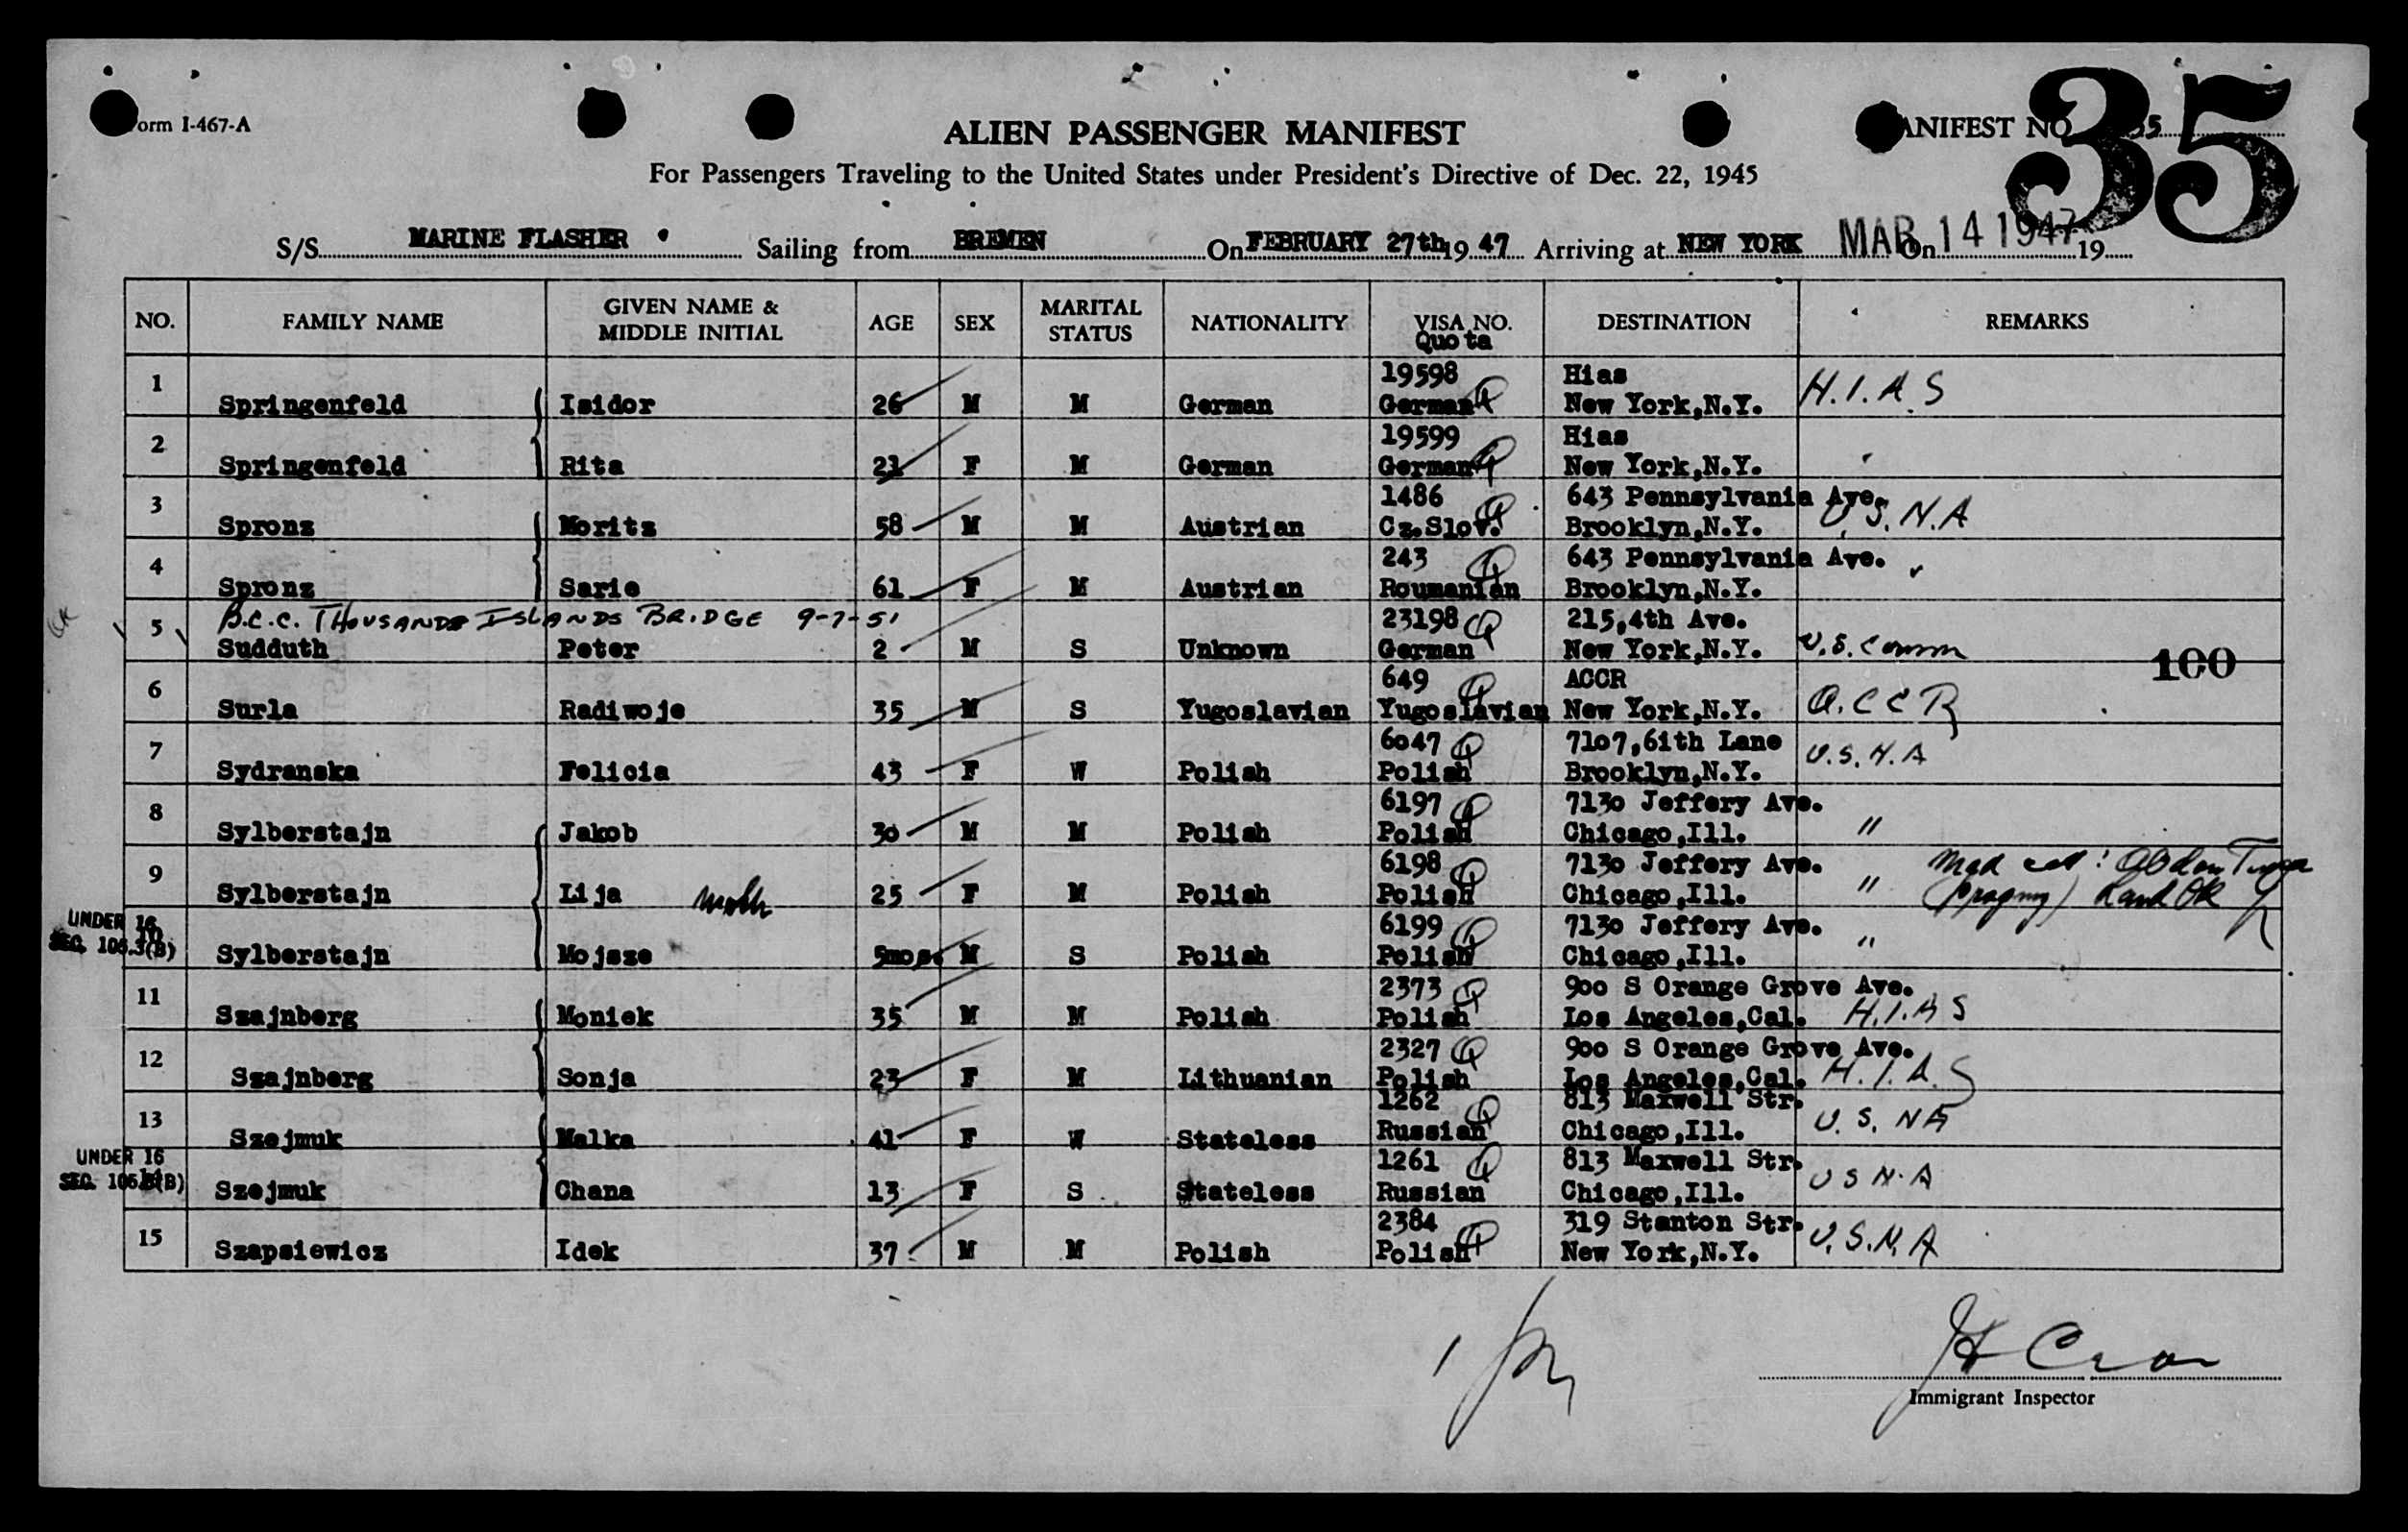 Form I-467-A
ALIEN PASSENGER MANIFEST
MANIFEST NO 35
35
For Passengers Traveling to the United States under President's Directive of Dec. 22, 1945
S/S MARINE FLASHER Sailing from BREMEN On FEBRUARY 27th 19 47 Arriving at NEW YORK On MAR 14 1947 19
NO. FAMILY NAME GIVEN NAME & MIDDLE INITIAL AGE SEX MARITAL STATUS NATIONALITY VISA NO. Quota DESTINATION REMARKS
1 Springenfeld Isidor 26 M M German 19598 German Hias New York,N.Y. H.I.A.S
2 Springenfeld Rita 21 F M German 19599 German Hias New York,N.Y. "
3 Spronz Moritz 58 M M Austrian 1486 Cz.Slov. 643 Pennsylvania Ave. Brooklyn,N.Y. U.S.N.A
4 Spronz Sarie 61 F M Austrian 243 Roumanian 643 Pennsylvania Ave. Brooklyn,N.Y. "
B.C.C. THOUSANDS ISLANDS BRIDGE 9-7-51
5 Sudduth Peter 2 M S Unknown 23198 German 215,4th Ave. New York,N.Y. U.S. Comm
100
6 Surla Radiwoje 35 M S Yugoslavian 649 Yugoslavian ACCR New York,N.Y. A.C C R
7 Sydranska Felicia 43 F W Polish 6047 Polish 7107,61th Lane Brooklyn,N.Y. U.S.N.A
8 Sylberstajn Jakob 30 M M Polish 6197 Polish 7130 Jeffery Ave. Chicago,Ill. "
9 Sylberstajn Lija 25 F M Polish 6198 Polish 7130 Jeffery Ave. Chicago,Ill. " Med cert: Land OK
UNDER 16 SEC. 106.3(B)
10 Sylberstajn Mojsze 5mos. M S Polish 6199 Polish 7130 Jeffery Ave. Chicago,Ill. "
11 Szajnberg Moniek 35 M M Polish 2373 Polish 900 S Orange Grove Ave. Los Angeles,Cal. H.I.A S
12 Szajnberg Sonja 23 F M Lithuanian 2327 Polish 900 S Orange Grove Ave. Los Angeles,Cal. H.I.A.S
13 Szejmuk Malka 41 F W Stateless 1262 Russian 813 Maxwell Str. Chicago,Ill. U.S. NA
UNDER 16 SEC. 106.3(B)
14 Szejmuk Chana 13 F S Stateless 1261 Russian 813 Maxwell Str. Chicago,Ill. U S N.A
15 Szapsiewicz Idek 37 M M Polish 2384 Polish 319 Stanton Str. New York,N.Y. U.S.N.A
Immigrant Inspector